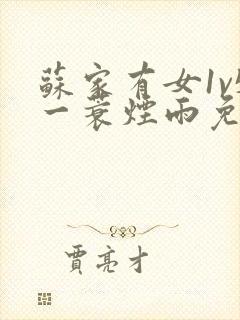 蘇家有女1v
一蓑煙雨免
賈亮才